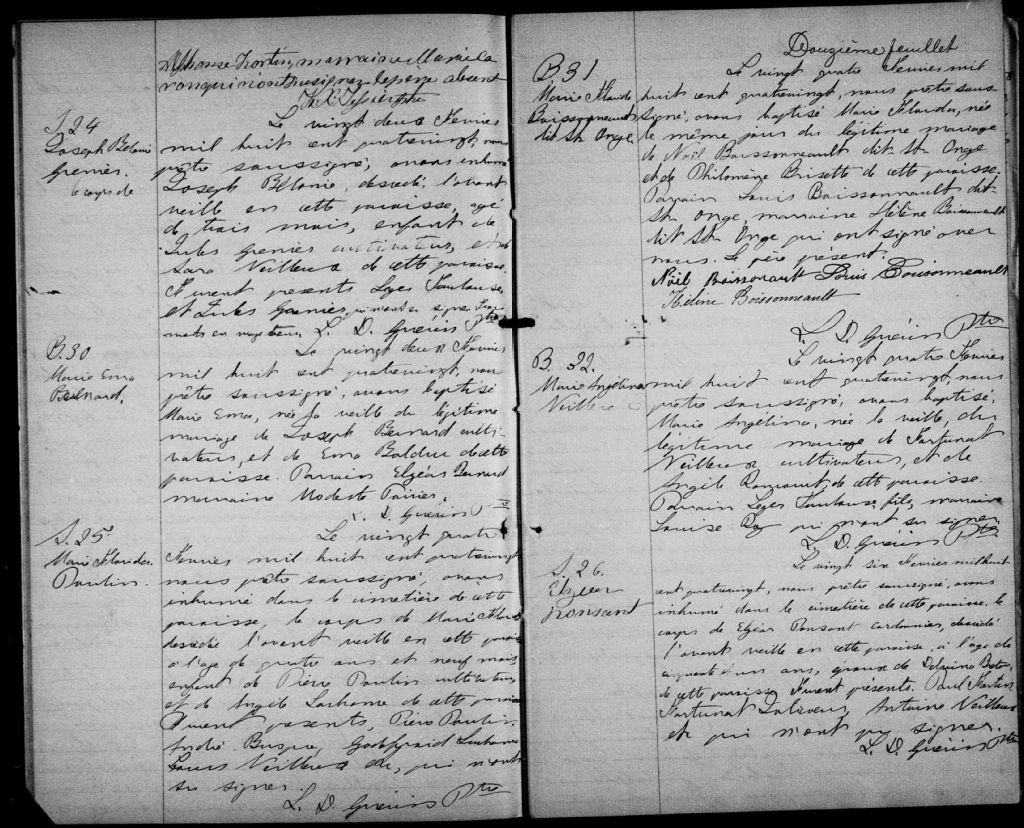 Alphonse Fortin, marraine Maria La
S. 24
Joseph Bétonie
Grenier.
le corps de
Le vingt deux Fevrier
mil huit cent quatrevingt, nous
prêtre soussigné, avons inhumé
Joseph Bétonie, décédé, l'avant
veille en cette paroisse, agé
de trois mois, enfant de
Jules Grenier cultivateur, et de
Sara Veilleux de cette paroisse.
Furent presents
et Jules Grenier, qui n'ont su signer.
L. D. Guérin Ptre
B. 30
Marie Ema
Bernard.
Le vingt deux Fevrier
mil huit cent quatrevingt, nous
prêtre soussigné, avons baptisé
Marie Ema, née la veille du légitime
mariage de Joseph Bernard culti-
vateur, et de Ema Bolduc de cette
paroisse. Parrain Elzéar Bernard
marraine Modeste Poirier.
L. D. Guérin Ptre
S. 25
Marie Flavida
Poulin.
Le vingt quatre
Fevrier mil huit cent quatrevingt
nous prêtre soussigné, avons
inhumé dans le cimetière de cette
paroisse, le corps de Marie
décédée l'avant veille en cette paroisse
à l'age de quatre ans et neuf mois
enfant de Pierre Poulin cultivateur
et de Angèle Lachance de cette paroisse
Furent presents, Pierre Poulin,
André Godfroid
Louis Veilleux etc, qui n'ont
su signer.
L. D. Guérin Ptre
Douzième feuillet
B 31
Marie Flavida
Boissonneault
dit St. Onge
Le vingt quatre Fevrier mil
huit cent quatrevingt, nous prêtre sous-
signé, avons baptisé Marie Flavida, née
le même jour du légitime mariage
de Noël Boissonneault dit St. Onge
et de Philomène Brisette de cette paroisse.
Parrain Louis Boissonnault dit
St. Onge, marraine Hélène Boissonault
dit St. Onge qui ont signé avec
nous. Le père présent.
Noël Boissonault Louis Boissonneault
Hélène Boissonneault
L. D. Guérin Ptre
B. 32.
Marie Angélina
Veilleux
Le vingt quatre Fevrier
mil huit cent quatrevingt, nous
prêtre soussigné, avons baptisé,
Marie Angélina, née la veille, du
légitime mariage de Fortunat
Veilleux cultivateur, et de
Angèle de cette paroisse.
Parrain fils, marraine
Louise Roy qui n'ont su signer.
L. D. Guérin Ptre
S. 26.
Elzear
Ponsant
Le vingt six Fevrier mil huit
cent quatrevingt, nous prêtre soussigné, avons
inhumé dans le cimetière de cette paroisse, le
corps de Elzéar Ponsant cordonnier, décédé
l'avant veille en cette paroisse, à l'age de
cinquante un ans, époux de
de cette paroisse. Furent présents. Paul
Fortunat Antoine Veilleux
etc qui n'ont pu signer.
L. D. Guérin Ptre